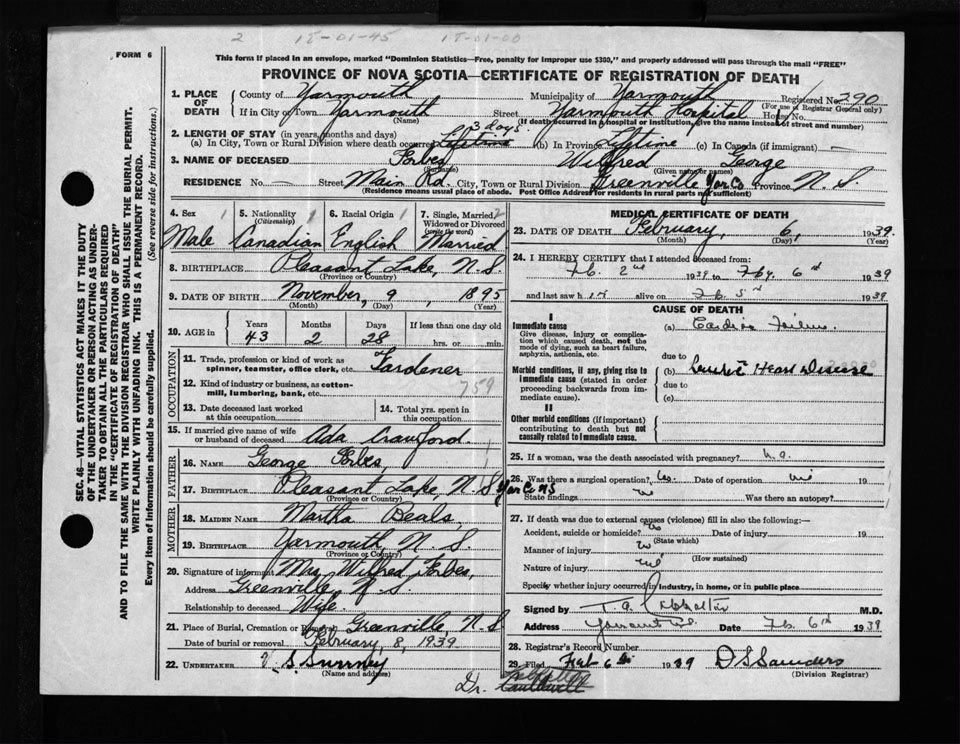 2 18-01-45 18-01-00
FORM 6
This form if placed in an envelope, marked "Dominion Statistics—Free, penalty for improper use $300," and properly addressed will pass through the mail "FREE"
PROVINCE OF NOVA SCOTIA—CERTIFICATE OF REGISTRATION OF DEATH
SEC. 46—VITAL STATISTICS ACT MAKES IT THE DUTY
OF THE UNDERTAKER OR PERSON ACTING AS UNDER-
TAKER TO OBTAIN ALL THE PARTICULARS REQUIRED
IN THE "CERTIFICATE OF REGISTRATION OF DEATH"
AND TO FILE THE SAME WITH THE DIVISION REGISTRAR WHO SHALL ISSUE THE BURIAL PERMIT.
WRITE PLAINLY WITH UNFADING INK. THIS IS A PERMANENT RECORD.
Every item of information should be carefully supplied. (See reverse side for instructions.)
1. PLACE OF DEATH County of Yarmouth Municipality of Yarmouth Registered No. 290
(For use of Registrar General only)
If in City or Town Yarmouth Street Yarmouth Hospital House No.
(Name) (If death occurred in a hospital or institution, give the name instead of street and number)
2. LENGTH OF STAY (in years, months and days) 3 days
(a) In City, Town or Rural Division where death occurred Lifetime (b) In Province Lifetime (c) In Canada (if immigrant) —
3. NAME OF DECEASED Forbes Wilfred George
(Surname) (Given name or names)
RESIDENCE No. — Street Main Rd. City, Town or Rural Division Greenville Yar Co Province N. S.
(Residence means usual place of abode. Post Office Address for residents in rural parts not sufficient)
4. Sex 1 5. Nationality (Citizenship) 1 6. Racial Origin 1 7. Single, Married, Widowed or Divorced (write the word) 2
Male Canadian English Married
8. BIRTHPLACE Pleasant Lake, N. S.
(Province or Country)
9. DATE OF BIRTH November, 9, 1895
(Month) (Day) (Year)
10. AGE in Years Months Days If less than one day old
43 2 28 hrs. or min.
OCCUPATION
11. Trade, profession or kind of work as spinner, teamster, office clerk, etc. Gardener
12. Kind of industry or business, as cotton-mill, lumbering, bank, etc. 759
13. Date deceased last worked at this occupation 14. Total yrs. spent in this occupation
15. If married give name of wife or husband of deceased Ada Crawford
FATHER
16. NAME George Forbes,
17. BIRTHPLACE Pleasant Lake, N. S. Yar Co NS
(Province or Country)
MOTHER
18. MAIDEN NAME Martha Beals,
19. BIRTHPLACE Yarmouth, N. S.
(Province or Country)
20. Signature of informant Mrs Wilfred Forbes,
Address Greenville, N. S.
Relationship to deceased Wife.
21. Place of Burial, Cremation or Removal Greenville, N. S
Date of burial or removal February, 8, 1939
22. UNDERTAKER S
(Name and address)
MEDICAL CERTIFICATE OF DEATH
23. DATE OF DEATH February, 6, 1939.
(Month) (Day) (Year)
24. I HEREBY CERTIFY that I attended deceased from:
Feb. 2nd 1939 to Feby. 6th 1939
and last saw him alive on Feb 5th 1939
CAUSE OF DEATH
I
Immediate cause (a) Cardiac Failure.
Give disease, injury or complication which caused death, not the mode of dying, such as heart failure, asphyxia, asthenia, etc.
due to
Morbid conditions, if any, giving rise to immediate cause (stated in order proceeding backwards from immediate cause). (b) Heart Disease
due to
(c)
II
Other morbid conditions (if important) contributing to death but not causally related to immediate cause.
25. If a woman, was the death associated with pregnancy?
26. Was there a surgical operation? Date of operation 19
State findings Was there an autopsy?
27. If death was due to external causes (violence) fill in also the following:—
Accident, suicide or homicide? Date of injury 19
(State which)
Manner of injury
(How sustained)
Nature of injury
Specify whether injury occurred in industry, in home, or in public place
Signed by T. A. M.D.
Address Date Feb. 6th 1939
28. Registrar's Record Number
29. Filed Feb 6th 1939 D S Saunders
(Division Registrar)
Dr.